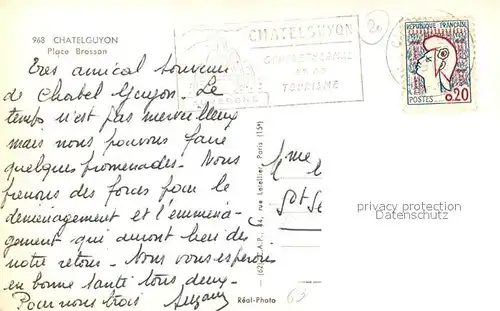 968 CHATELGUYON
Place Brosson
CHATELGUYON
TOURISME
RÉPUBLIQUE FRANÇAISE
POSTES 0,20
Très amical souvenir
de Chatel Guyon. Le
temps n'est pas merveilleux
mais nous pouvons faire
quelques promenades. Nous
prenons des forces pour le
déménagement et l'emména-
gement qui auront lieu dès
notre retour. Nous vous espérons
en bonne santé tous deux.
Pour nous trois Suzanne
Réal-Photo
rue Letellier, Paris (15e)
Mme
privater Besitzer
Datenschutz